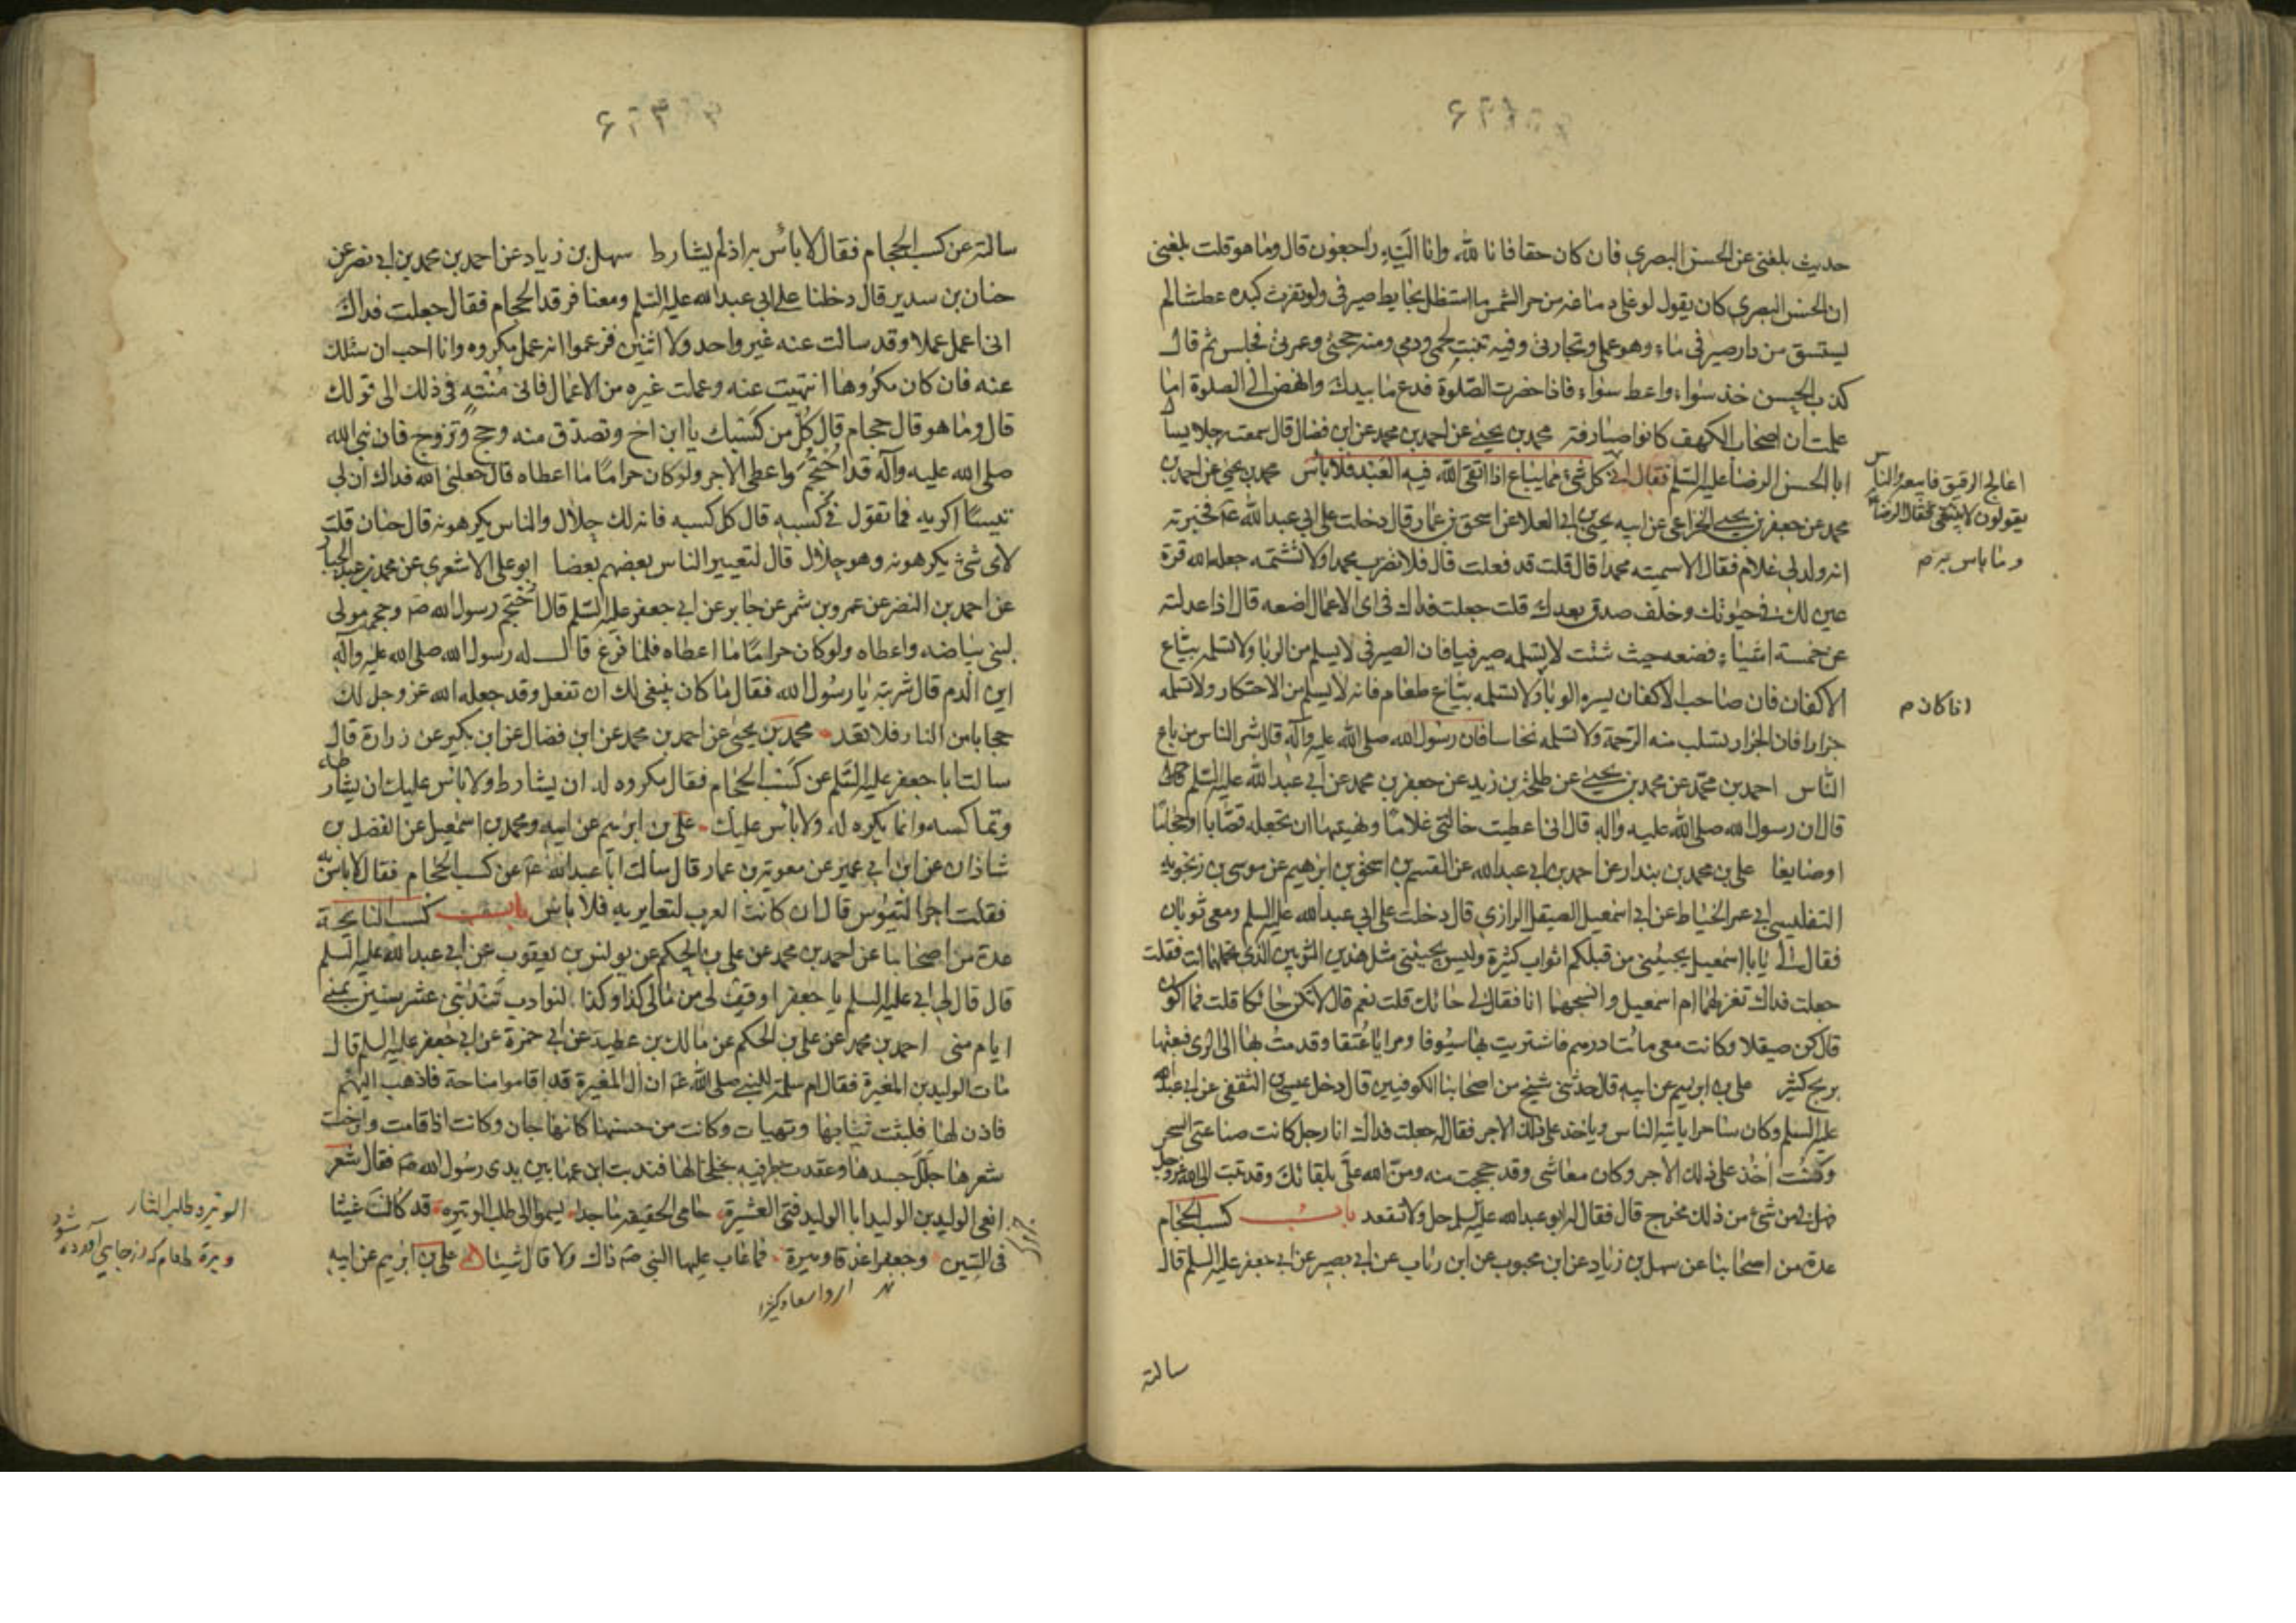 حديث بلغني عن الحسن البصري فان كان حقا فانا لله وانا اليه راجعون قال وما هو قلت بلغني
ان الحسن البصري كان يقول لو غلى دماغه من حر الشمس ما استظل بحايط صيرفي ولو تفرث كبده عطشا لم
يستسق من دار صيرفي ماء وهو عملي وتجارتي وفيه نبت لحمي ودمي ومنه حجتي وعمرتي فجلس ثم قال
كذب الحسن خذ سواء واعط سواء فاذا حضرت الصلوة فدع ما بيدك وانهض الى الصلوة اما
علمت ان اصحاب الكهف كانوا صيارفة محمد بن يحيى عن احمد بن محمد عن ابن فضال قال سمعت رجلا يسأل
ابا الحسن الرضا عليه السلم فقال اني كل شئ مما يباع اذا اتقى الله فيه العبد فلا باس محمد بن يحيى عن احمد بن
محمد عن جعفر بن يحيى الخزاعي عن ابيه يحيى بن ابي العلا عن اسحق بن عمار قال دخلت على ابي عبد الله ع فخبرته
انه ولد لي غلام فقال الا سميته محمدا قال قلت قد فعلت قال فلا تضرب محمدا ولا تشتمه جعله الله قرة
عين لك في حيوتك وخلف صدق بعدك قلت جعلت فداك في اى الاعمال اضعه قال اذا عدلته
عن خمسة اشياء فضعه حيث شئت لا تسلمه صيرفيا فان الصيرفي لا يسلم من الربا ولا تسلمه بياع
الاكفان فان صاحب الاكفان يسره الوبا ولا تسلمه بياع طعام فانه لا يسلم من الاحتكار ولا تسلمه
جزارا فان الجزار تسلب منه الرحمة ولا تسلمه نخاسا فان رسول الله صلى الله عليه وآله قال شر الناس من باع
الناس احمد بن محمد عن محمد بن يحيى عن طلحة بن زيد عن جعفر بن محمد عن ابي عبد الله عليه السلم
قال ان رسول الله صلى الله عليه واله قال اني اعطيت خالتي غلاما ونهيتها ان تجعله قصابا او حجاما
او صايغا علي بن محمد بن بندار عن احمد بن ابي عبد الله عن القسم بن اسحق بن ابرهيم عن موسى بن زنجويه
التفليسي ابي عمر الخياط عن ابي اسمعيل الصيقل الرازي قال دخلت على ابي عبد الله عليه السلم ومعي ثوبان
فقال لي يا با اسمعيل يجيئني من قبلكم اثواب كثيرة وليس يجيئني مثل هذين الثوبين الذي تحملهما انت فقلت
جعلت فداك تغزلهما ام اسمعيل وانسجهما انا فقال لي حائك قلت نعم قال لا تكن حائكا قلت فما اكون
قال كن صيقلا وكانت معي مائتا درهم فاشتريت بها سيوفا ومرايا عتقا وقدمت بها الى الرى فبعتها
بربح كثير علي بن ابرهيم عن ابيه قال حدثني شيخ من اصحابنا الكوفيين قال دخل عيسى الثقفي عن ابي عبد الله
عليه السلم وكان ساحرا ياتيه الناس وياخذ على ذلك الاجر فقال له جعلت فداك انا رجل كانت صناعتي السحر
وكنت آخذ على ذلك الاجر وكان معاشي وقد حججت منه ومن الله علي بلقائك وقد تبت الى الله عز وجل
فهل لي من شئ من ذلك مخرج قال فقال له ابو عبد الله عليه السلم حل ولا تعقد باب كسب الحجام
عدة من اصحابنا عن سهل بن زياد عن ابن محبوب عن ابن رئاب عن ابي بصير عن ابي جعفر عليه السلم قال
اعالج الرقيق فابيعه والناس
يقولون لا ينبغي فقال الرضا
وما باس به
سالته
سالته عن كسب الحجام فقال لا باس به اذ لم يشارط سهل بن زياد عن احمد بن محمد بن ابي نصر عن
حنان بن سدير قال دخلنا على ابي عبد الله عليه السلم ومعنا فرقد الحجام فقال جعلت فداك
اني اعمل عملا وقد سالت عنه غير واحد ولا اثنين فزعموا انه عمل مكروه وانا احب ان اسئلك
عنه فان كان مكروها انتهيت عنه وعملت غيره من الاعمال فاني منته في ذلك الى قولك
قال وما هو قال حجام قال كل من كسبك يا ابن اخ وتصدق منه وحج وتزوج فان نبي الله
صلى الله عليه وآله قد احتجم واعطى الاجر ولو كان حراما ما اعطاه قال جعلني الله فداك ان لي
تيسا اكريه فما تقول في كسبه قال كل كسبه فانه لك حلال والناس يكرهونه قال حنان قلت
لاى شئ يكرهونه وهو حلال قال لتعيير الناس بعضهم بعضا ابو علي الاشعري عن محمد بن عبد الجبار
عن احمد بن النضر عن عمرو بن شمر عن جابر عن ابي جعفر عليه السلم قال احتجم رسول الله ص وحجمه مولى
لبني بياضه واعطاه ولو كان حراما ما اعطاه فلما فرغ قال له رسول الله صلى الله عليه وآله
اين الدم قال شربته يا رسول الله فقال ما كان ينبغي لك ان تفعل وقد جعله الله عز وجل لك
حجابا من النار فلا تعد محمد بن يحيى عن احمد بن محمد عن ابن فضال عن ابن بكير عن زرارة قال
سالت ابا جعفر عليه السلم عن كسب الحجام فقال مكروه له ان يشارط ولا باس عليك ان يشارطه
وتماكسه وانما يكره له ولا باس عليك علي بن ابرهيم عن ابيه ومحمد بن اسمعيل عن الفضل بن
شاذان عن ابن ابي عمير عن معوية بن عمار قال سالت ابا عبد الله ع عن كسب الحجام فقال لا باس به
فقلت اجر التيوس قال ان كانت العرب لتعاير به فلا باس باب كسب النايحة
عدة من اصحابنا عن احمد بن محمد عن علي بن الحكم عن يونس بن يعقوب عن ابي عبد الله عليه السلم
قال قال لي ابي عليه السلم يا جعفر اوقف لي من مالي كذا وكذا لنوادب تندبني عشر سنين بمنى
ايام منى احمد بن محمد عن علي بن الحكم عن مالك بن عطية عن ابي حمزة عن ابي جعفر عليه السلم قال
مات الوليد بن المغيرة فقال ام سلمة للنبي صلى الله ع ان آل المغيرة قد اقاموا مناحة فاذهب اليهم
فاذن لها فلبثت ثيابها وتهيات وكانت من حسنها كانها جان وكانت اذا قامت وارخت
شعرها جلل جسدها وعقدت بطرفيه خلخالها فندبت ابن عمها بين يدى رسول الله ص فقال شعر
انعى الوليد بن الوليد ابا الوليد فتى العشيرة حامى الحقيقة ماجد يسموا الى طلب الوتيره قد كان غيثا
في السنين وجعفرا غدقا وميرة فما عاب عليها النبي ص ذاك ولا قال شيئا علي بن ابرهيم عن ابيه
الوتيره طلب الثار
ويره طعام كه از جايي آورده شود